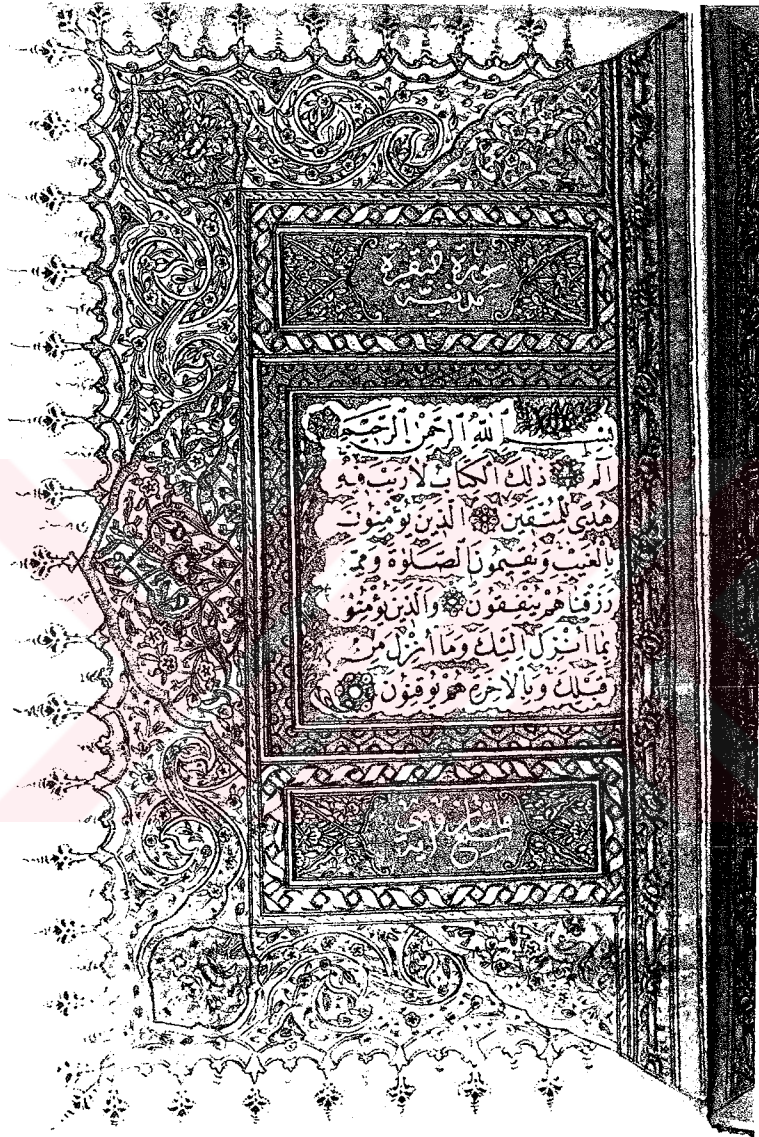 سورة البقرة
مدنية
بِسْمِ ٱللَّهِ ٱلرَّحْمَٰنِ ٱلرَّحِيمِ
الم ذٰلِكَ الْكِتَابُ لَا رَيْبَ فِيهِ
هُدًى لِلْمُتَّقِينَ الَّذِينَ يُؤْمِنُونَ
بِالْغَيْبِ وَيُقِيمُونَ الصَّلٰوةَ وَمِمَّا
رَزَقْنَاهُمْ يُنْفِقُونَ وَالَّذِينَ يُؤْمِنُونَ
بِمَا أُنْزِلَ إِلَيْكَ وَمَا أُنْزِلَ مِنْ
قَبْلِكَ وَبِالْآخِرَةِ هُمْ يُوقِنُونَ